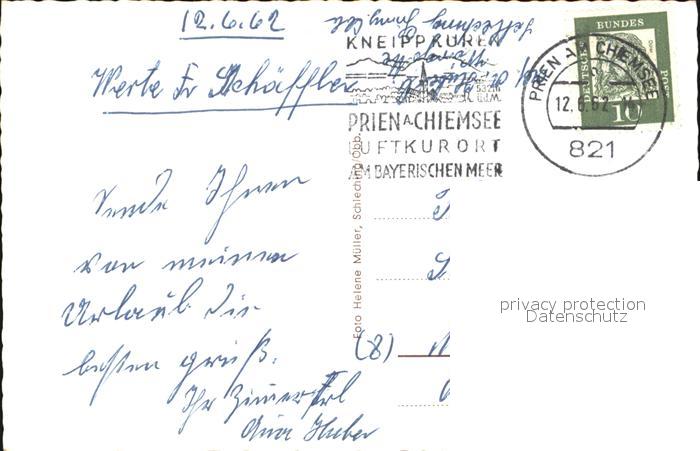 12.6.62
Werte Fr Schäffler
Sende Ihnen
von meinen
Urlaub die
besten grüß.
Ihr Zimmerfrl
Anna Huber
KNEIPPKUREN
532m
ü.d.M.
PRIEN A. CHIEMSEE
LUFTKURORT
AM BAYERISCHEN MEER
PRIEN AM CHIEMSEE
12.6.62
821
DEUTSCHE BUNDESPOST
10
Foto Helene Müller, Schleching/Obb.
(8)
privacy protection
Datenschutz